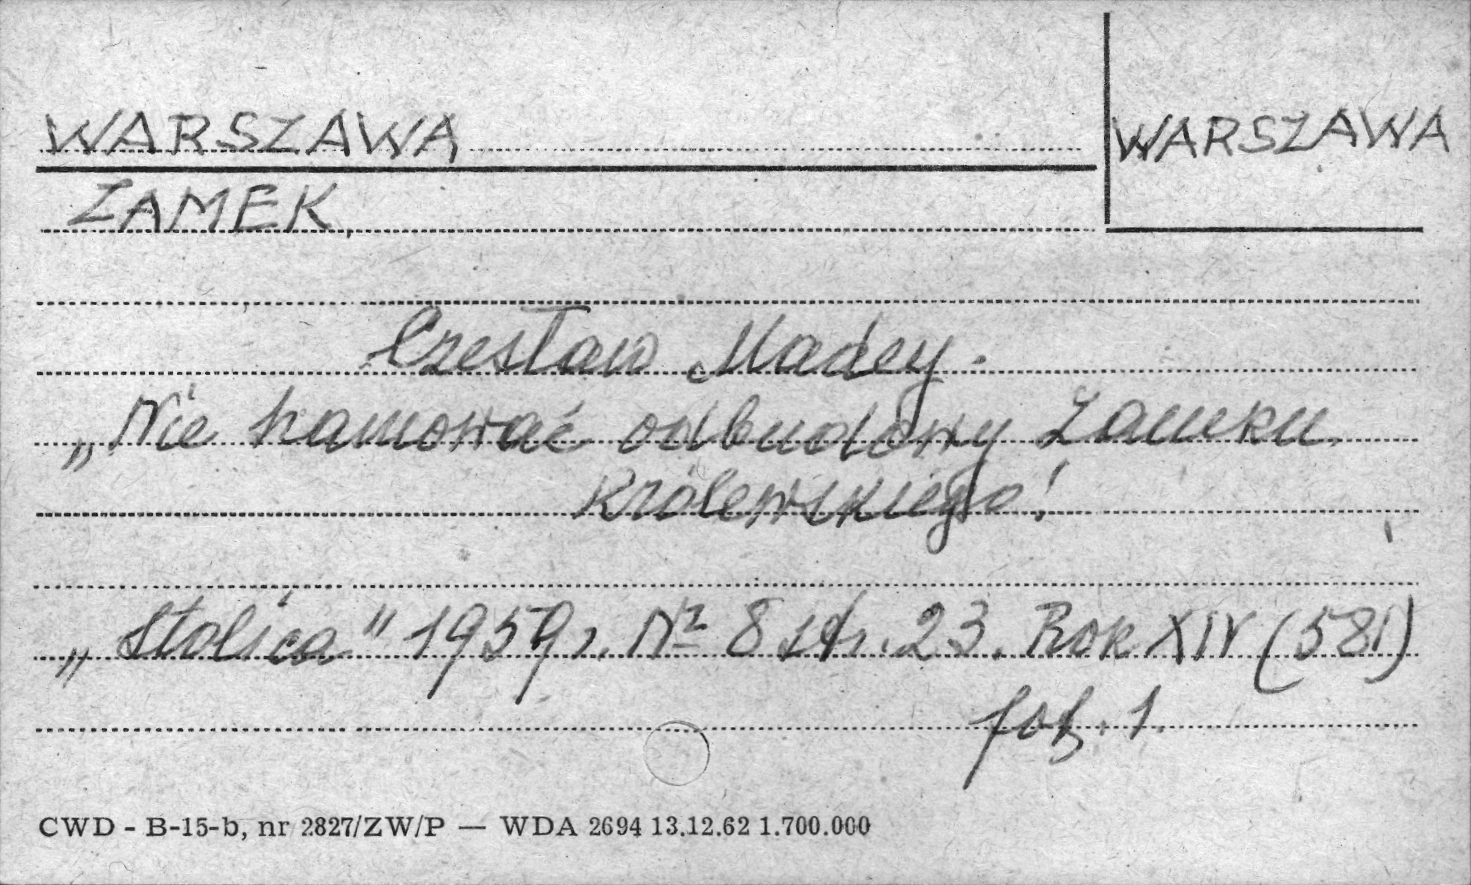 WARSZAWA
WARSZAWA
ZAMEK,
Czesław Madey.
„Nie hamować odbudowy Zamku
Królewskiego!
„Stolica" 1959 r. Nr 8 str. 23. Rok XIV (581)
fot. 1.
CWD - B-15-b, nr 2827/ZW/P — WDA 2694 13.12.62 1.700.000